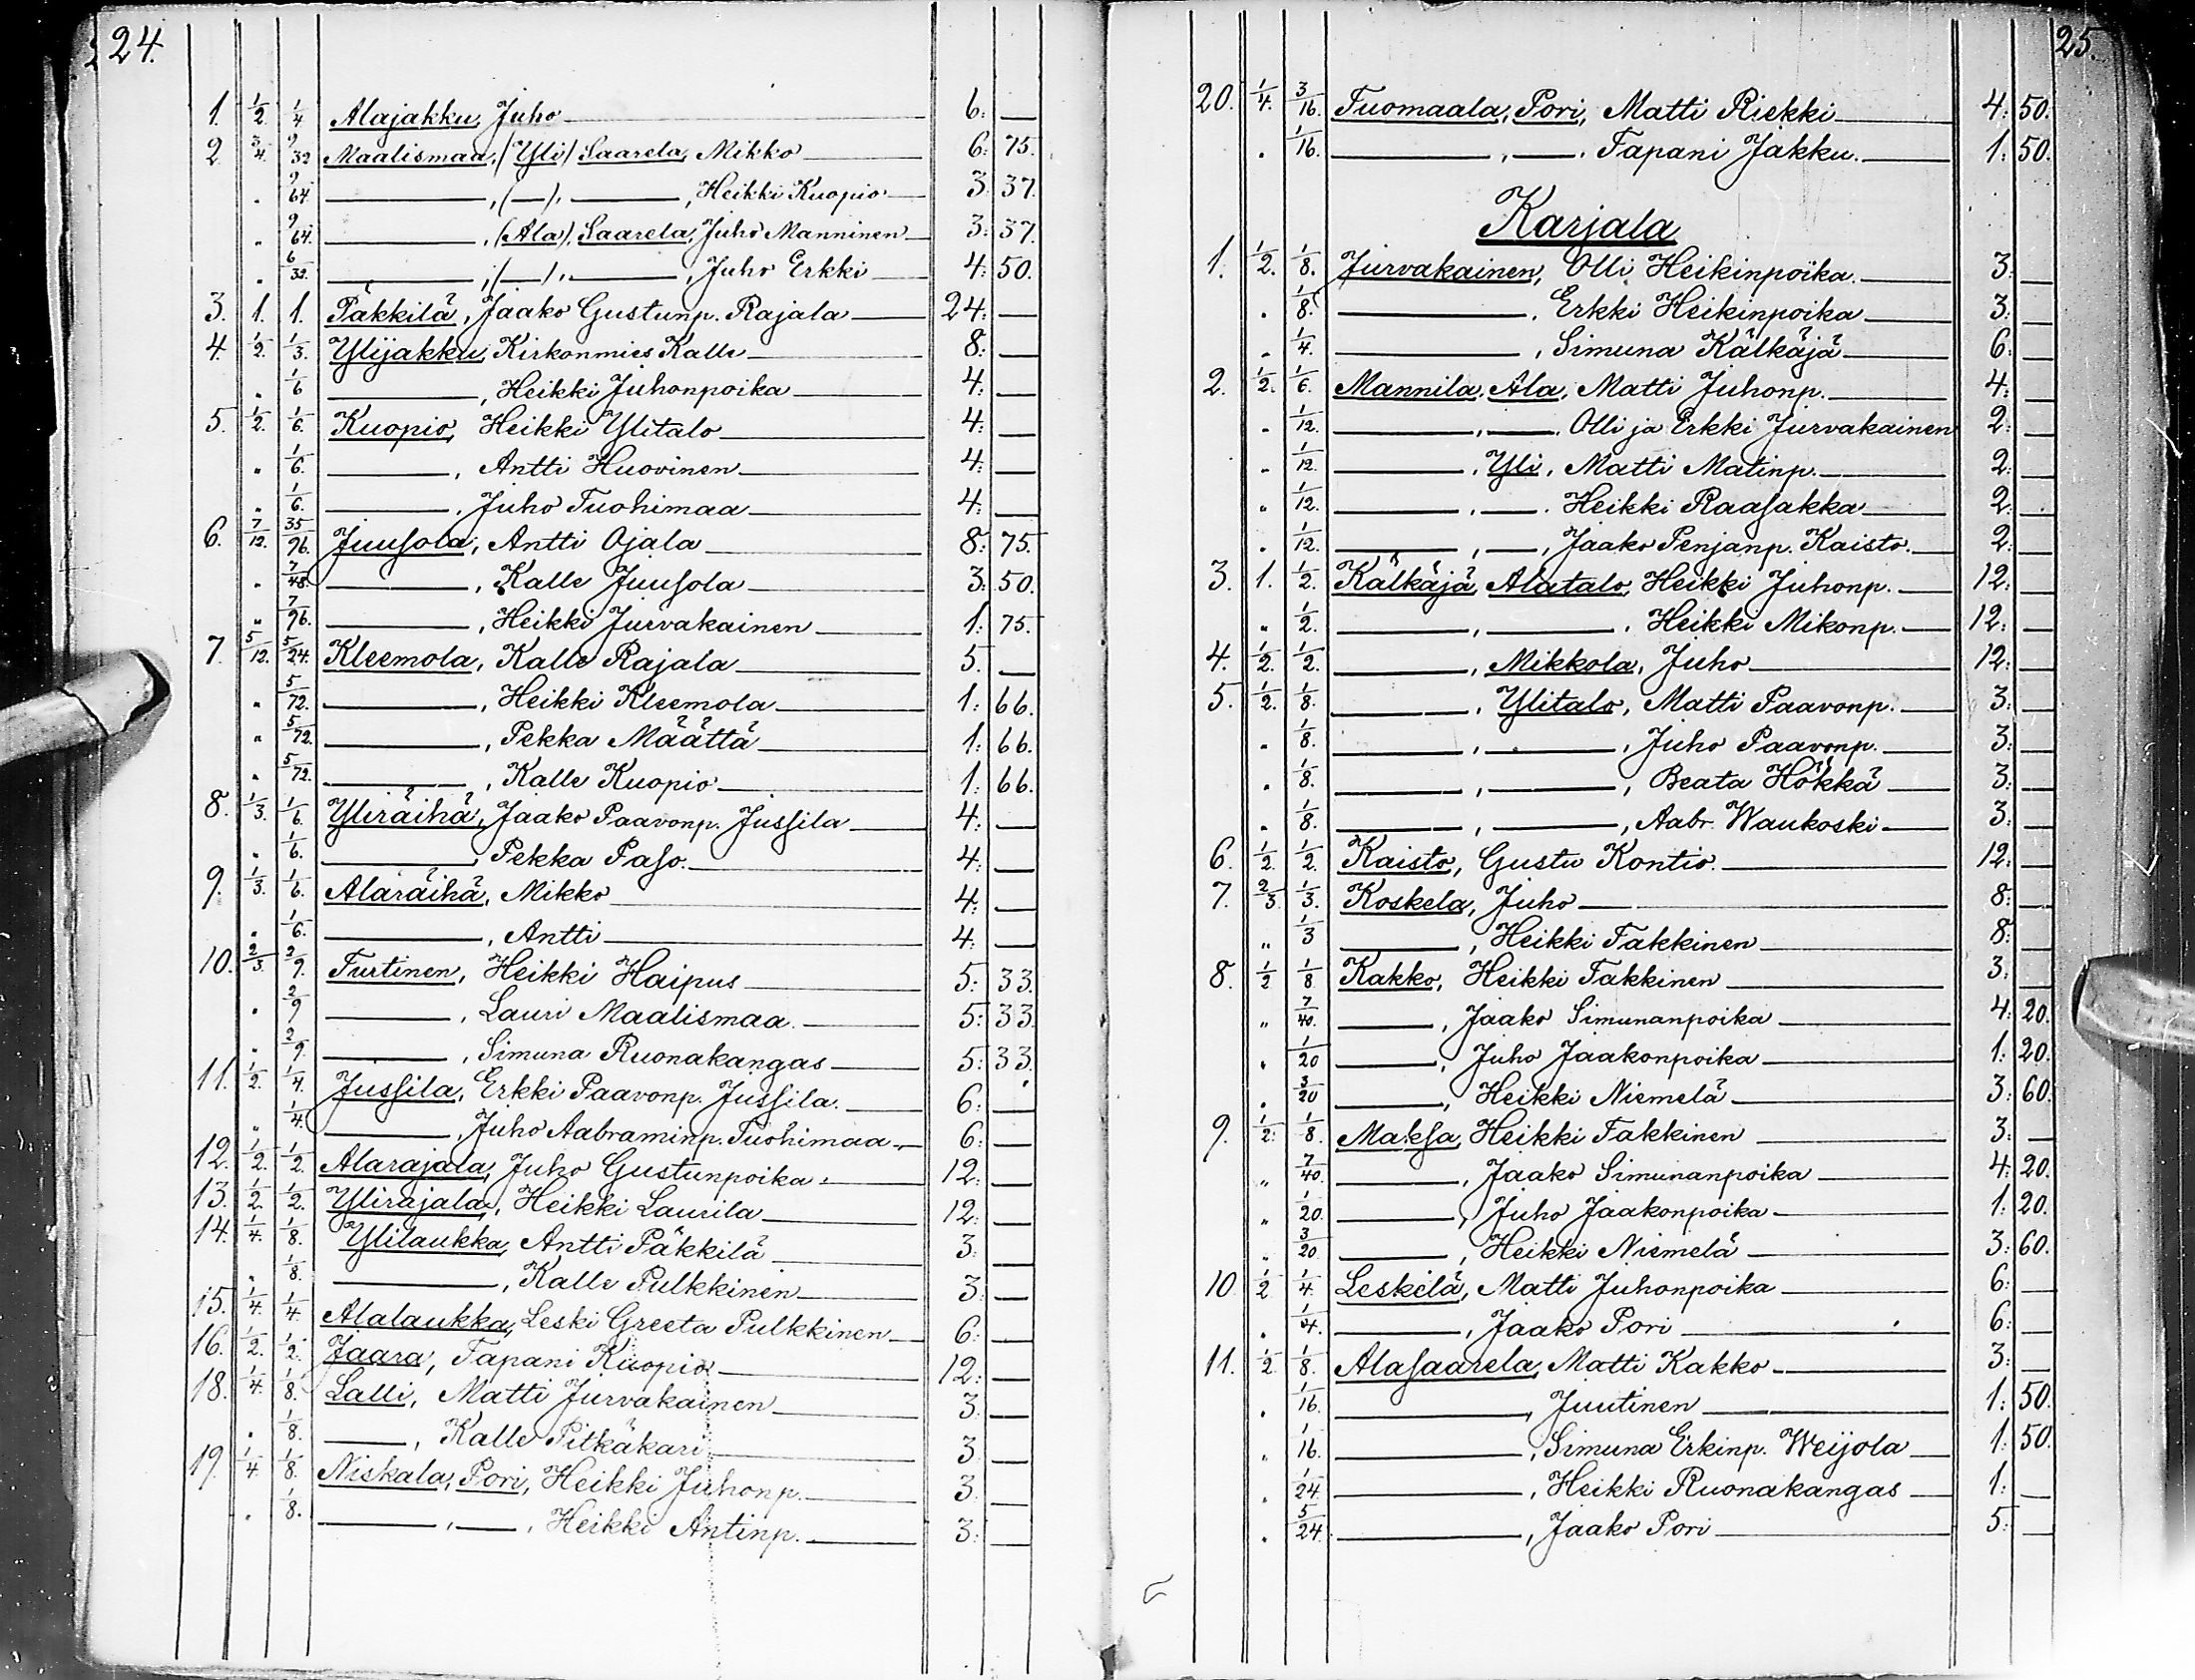 24.
1. 1/2. 1/4 Alajakku, Juho 6: —
2. 3/4. 9/32 Maalismaa, (Yli) Saarela, Mikko 6: 75.
„ 9/64. —, (—), —, Heikki Kuopio 3: 37.
„ 9/64. —, (Ala), Saarela, Juho Manninen 3: 37.
„ 6/32. —, (—), —, Juho Erkki 4: 50.
3. 1. 1. Päkkilä, Jaako Gustunp. Rajala 24: —
4. 1/2. 1/3. Ylijakku, Kirkonmies Kalle 8: —
„ 1/6 —, Heikki Juhonpoika 4: —
5. 1/2. 1/6. Kuopio, Heikki Ylitalo 4: —
„ 1/6. —, Antti Huovinen 4: —
„ 1/6. —, Juho Tuohimaa 4: —
6. 7/12. 35/96. Juusola, Antti Ojala 8: 75.
„ 7/48. —, Kalle Juusola 3: 50.
„ 7/96. —, Heikki Jurvakainen 1: 75.
7. 5/12. 5/24. Kleemola, Kalle Rajala 5. —
„ 5/72. —, Heikki Kleemola 1: 66.
„ 5/72. —, Pekka Määttä 1: 66.
„ 5/72. —, Kalle Kuopio 1: 66.
8. 1/3. 1/6. Yliräihä, Jaako Paavonp. Jussila 4: —
„ 1/6. —, Pekka Paso. 4: —
9. 1/3. 1/6. Alaräihä, Mikko 4: —
„ 1/6. —, Antti 4: —
10. 2/3. 2/9. Turtinen, Heikki Haipus 5: 33.
„ 2/9 —, Lauri Maalismaa. 5: 33.
„ 2/9. —, Simuna Ruonakangas 5: 33.
11. 1/2. 1/4. Jussila, Erkki Paavonp. Jussila. 6: —
„ 1/4. —, Juho Aabraminp. Tuohimaa 6: —
12. 1/2. 1/2. Alarajala, Juho Gustunpoika 12: —
13. 1/2. 1/2. Ylirajala, Heikki Laurila 12: —
14. 1/4. 1/8. Ylilaukka, Antti Päkkilä 3: —
„ 1/8. —, Kalle Pulkkinen 3: —
15. 1/4. 1/4. Alalaukka, Leski Greeta Pulkkinen 6: —
16. 1/2. 1/2. Jaara, Tapani Kuopio 12: —
18. 1/4. 1/8. Lalli, Matti Jurvakainen 3: —
„ 1/8. —, Kalle Pitkäkari 3 —
19. 1/4. 1/8. Niskala, Pori, Heikki Juhonp. 3. —
„ 1/8. —, —, Heikki Antinp. 3: —
25.
20. 1/4. 3/16. Tuomaala, Pori, Matti Riekki 4: 50.
„ 1/16. —, —. Tapani Jakku. 1: 50.
Karjala
1. 1/2. 1/8. Jurvakainen, Olli Heikinpoika. 3: —
„ 1/8. —. Erkki Heikinpoika 3: —
„ 1/4. —, Simuna Kälkäjä 6: —
2. 1/2. 1/6. Mannila, Ala, Matti Juhonp. 4: —
„ 1/12. —, —. Olli ja Erkki Jurvakainen 2: —
„ 1/12. —, Yli, Matti Matinp. 2: —
„ 1/12. —, —. Heikki Raasakka 2: —
„ 1/12. —, —, Jaako Penjanp. Kaisto. 2: —
3. 1. 1/2. Kälkäjä, Alatalo, Heikki Juhonp. 12: —
„ 1/2. —, —, Heikki Mikonp. 12: —
4. 1/2. 1/2. —, Mikkola, Juho 12: —
5. 1/2. 1/8. —, Ylitalo, Matti Paavonp. 3: —
„ 1/8. —, —, Juho Paavonp. 3: —
„ 1/8. —, —, Beata Hökkä 3: —
„ 1/8. —, —, Aabr. Waukoski 3: —
6. 1/2. 1/2. Kaisto, Gustu Kontio. 12: —
7. 2/3. 1/3. Koskela, Juho 8: —
„ 1/3 —, Heikki Takkinen 8: —
8. 1/2 1/8 Kakko, Heikki Takkinen 3: —
„ 7/40. —, Jaako Simunanpoika 4: 20.
„ 1/20 —, Juho Jaakonpoika 1: 20.
„ 3/20 —, Heikki Niemelä 3: 60.
9. 1/2. 1/8. Maksa, Heikki Takkinen 3: —
„ 7/40. —, Jaako Simunanpoika 4: 20.
„ 1/20. —, Juho Jaakonpoika 1: 20.
„ 3/20 —, Heikki Niemelä 3: 60.
10. 1/2 1/4. Leskelä, Matti Juhonpoika 6: —
„ 1/4. —, Jaako Pori 6: —
11. 1/2. 1/8. Alasaarela, Matti Kakko 3: —
„ 1/16. —, Juutinen 1: 50.
„ 1/16. —, Simuna Erkinp. Weijola 1: 50.
„ 1/24. —, Heikki Ruonakangas 1: —
„ 5/24. —, Jaako Pori 5: —